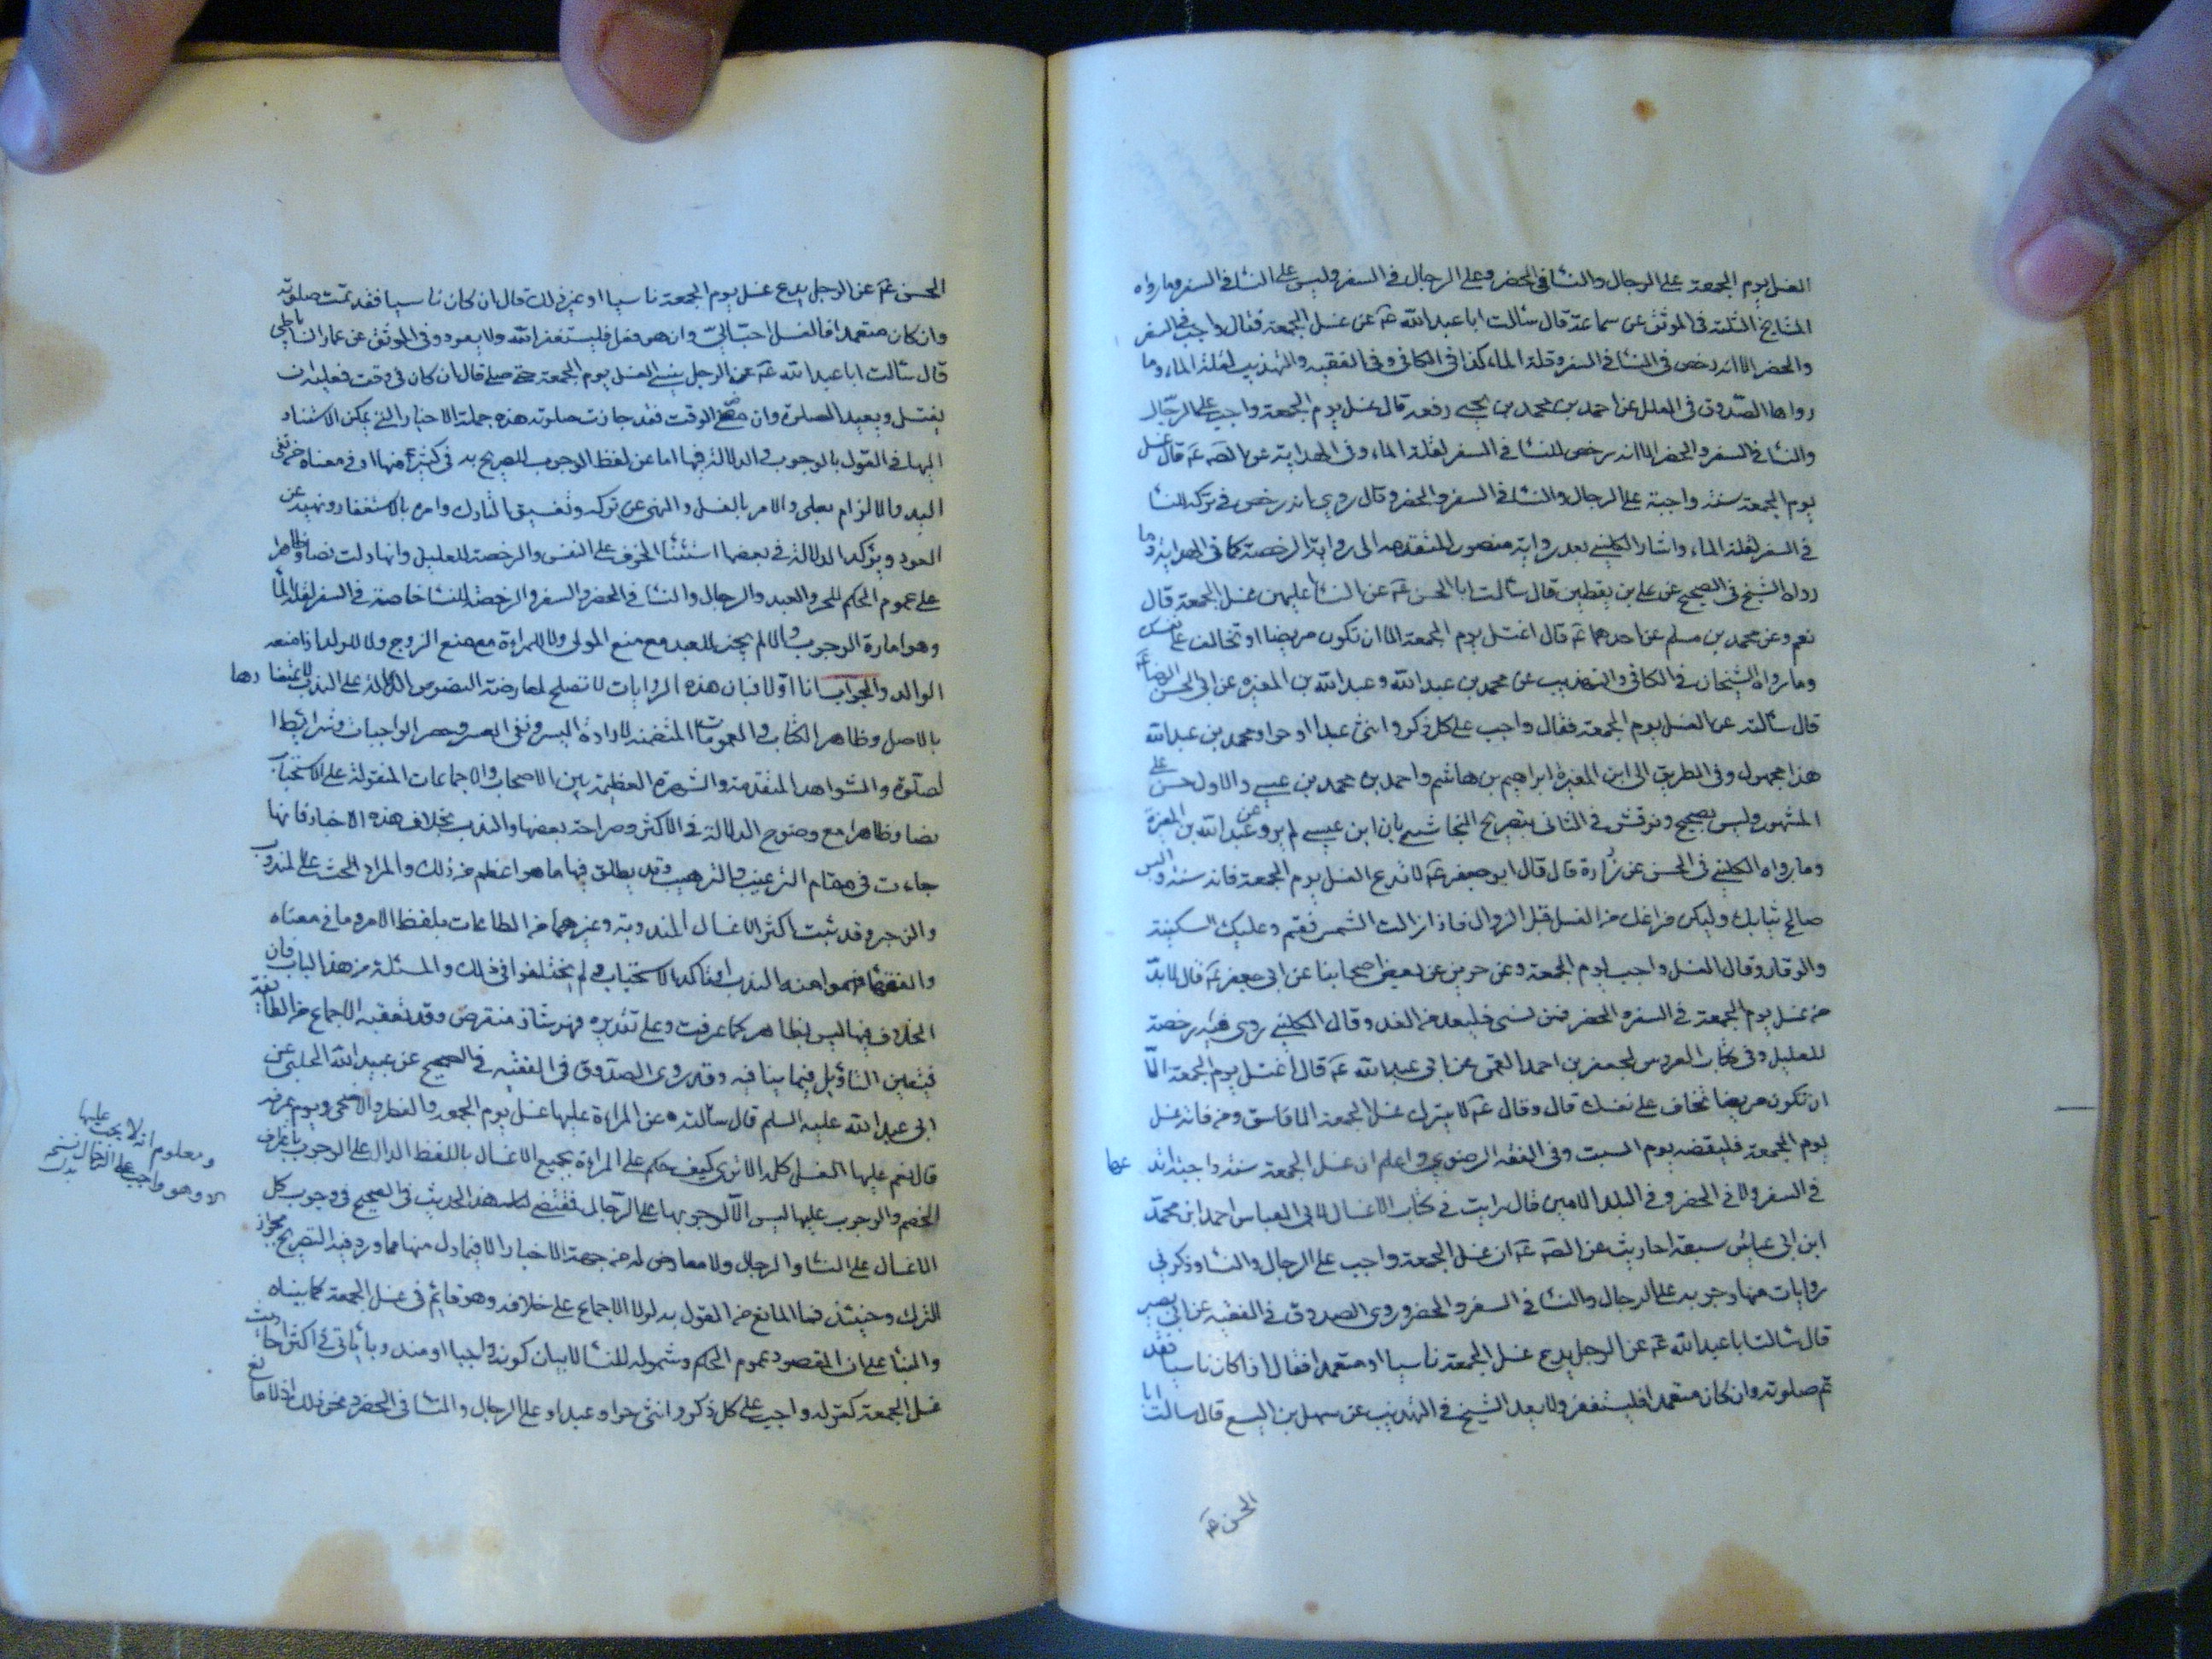 الغسل يوم الجمعة على الرجال والنسا في الحضر وعلى الرجال في السفر وليس على النسا في السفر وما رواه
المشايخ الثلثة في الموثق عن سماعة قال سئالت ابا عبد الله عم عن غسل الجمعة فقال واجب في السفر
والحضر الا انه رخص في النسا في السفر وقلة الماء كذا في الكافي وفي الفقيه والتهذيب لقلة الماء وما
رواها الصدوق في العلل عن احمد بن محمد بن يحيى رفعه قال غسل يوم الجمعة واجب على الرجال
والنسا في السفر والحضر الا انه رخص للنسا في السفر لقلة الماء وفي الهداية عن الصه عم قال غسل
يوم الجمعة سنة واجبة على الرجال والنسا في السفر والحضر وقال روي انه رخص في تركه للنسا
في السفر لقلة الماء واشار الكليني بعد رواية منصور المتقدمه الى رواية الرخصة كما في الهداية وما
رواه الشيخ في الصحيح عن علي بن يقطين قال سئالت ابا الحسن عم عن النسا عليهن غسل الجمعة قال
نعم وعن محمد بن مسلم عن احدهما عم قال اغتسل يوم الجمعة الا ان تكون مريضا او تخاف على نفسك
وما رواه الشيخان في الكافي والتهذيب عن محمد بن عبد الله وعبد الله بن المغيره عن ابي الحسن الرضا عم
قال سألته عن الغسل يوم الجمعة فقال واجب على كل ذكر وانثى عبد او حر ومحمد بن عبد الله
هذا مجهول وفي الطريق الى ابن المغيرة ابراهيم بن هاشم واحمد بن محمد بن عيسى والاول حسن على
المشهور وليس بصحيح ونوقش في الثاني بتصريح النجاشي بان ابن عيسى لم يرو عن عبد الله بن المغيرة
وما رواه الكليني في الحسن عن زرارة قال قال ابو جعفر عم لا تدع الغسل يوم الجمعة فانه سنة والبس
صالح ثيابك وليكن فراغك من الغسل قبل الزوال فاذا زالت الشمس فقم وعليك السكينة
والوقار وقال الغسل واجب يوم الجمعة وعن حريز عن بعض اصحابنا عن ابي جعفر عم قال لا بد
من غسل يوم الجمعة في السفر والحضر فمن نسي فليعد من الغد وقال الكليني روي فيه رخصة
للعليل وفي كتاب العروس لجعفر بن احمد القمي عن ابي عبد الله عم قال اغتسل يوم الجمعة الا
ان تكون مريضا تخاف على نفسك قال وقال عم لا يترك غسل الجمعة الا فاسق ومن فاته غسل
يوم الجمعة فليقضه يوم السبت وفي الفقه الرضوي واعلم ان غسل الجمعة سنة واجبة
في السفر ولا في الحضر وفي البلد الامين قال رايت في كتاب الاغسال لابي العباس احمد ابن محمد
ابن ابي عياش سبعة احاديث عن الصه عم ان غسل الجمعة واجب على الرجال والنسا وذكر في
روايات منها وجوبه على الرجال والنسا في السفر والحضر وروى الصدوق في الفقيه عن ابي بصير
قال سالت ابا عبد الله عم عن الرجل يدع غسل الجمعة ناسيا او متعمدا فقال اذا كان ناسيا فقد
تم صلوته وان كان متعمدا فليستغفر ولا يعد الشيخ في التهذيب عن سهل بن اليسع قال سالت ابا
الحسن عم
الحسن عم عن الرجل يدع غسل يوم الجمعة ناسيا او غير ذلك قال ان كان ناسيا فقد تمت صلوته
وان كان متعمدا فالغسل احب الي وان هو فعل فليستغفر الله ولا يعود وفي الموثق عن عمار الساباطي
قال سئالت ابا عبد الله عم عن الرجل ينسى الغسل يوم الجمعة حتى صلى قال ان كان في وقت فعليه ان
يغتسل ويعيد الصلوة وان مضى الوقت فقد جازت صلوته هذه جملة الاخبار التي يمكن الاستناد
اليها في القول بالوجوب والدلالة فيها اما عن لفظ الوجوب للصريح به في كثير منها او في معناه
والالزام بعلى والامر بالغسل والنهي عن تركه وتفسيق التارك وامره بالاستغفار ونهيه عن
العود ويؤكد الدلالة في بعضها استثنا الخوف على النفس والرخصة للعليل وانها دلت نصا وظاهرا
على عموم الحكم للحر والعبد والرجال والنسا في الحضر والسفر والرخصة للنسا خاصة في السفر لقلة الما
وهو امارة الوجوب والا لم يجز للعبد مع منع المولى ولا للمراءة مع منع الزوج ولا للولد اذا منعه
الوالد والجواب انا اولا فبان هذه الروايات لا تصلح لمعارضة النصوص الدالة على الندب لاعتضادها
بالاصل وظاهر الكتاب والعمومات المتضمنة لارادة اليسر ونفي العسر وحصر الواجبات وشرائط ا
لصلوة والشواهد المتقدمة والشهرة العظيمة بين الاصحاب والاجماعات المنقولة على الاستحباب
نصا وظاهرا مع وضوح الدلالة في الاكثر وصراحة بعضها والندب بخلاف هذه الاخبار فانها
جاءت في مقام الترغيب والترهيب وقد يطلق فيها ما هو اعظم من ذلك والمراد الحث على المندوب
والزجر وقد ثبت اكثر الاغسال المندوبة وغيرها من الطاعات بلفظ الامر وما في معناه
والفقها فهموا منه الندب او تاكد الاستحباب ولم يختلفوا في ذلك والمسئلة من هذا الباب فان
الخلاف فيها ليس بظاهر كما عرفت وعلى تقديره فهو شاذ منقرض وقد تعقبه الاجماع من الطائفة
فيتعين التاؤيل فيما ينافيه وقد روى الصدوق في الفقيه في الصحيح عن عبيد الله الحلبي عن
ابي عبد الله عليه السلم قال سألته عن المراءة عليها غسل يوم الجمعة والفطر والاضحى ويوم عرفه
قال نعم عليها الغسل كله الا ترى كيف حكم على المراءة بجميع الاغسال باللفظ الدال على الوجوب
الخصم والوجوب عليها ليس الا لوجوبها على الرجال فمقتضى هذا الحديث في الصحيح في وجوب كل
الاغسال على النسا والرجال ولا معارض له من جهة الاخبار الا فيما دل منها مما ورد فيه التصريح بجواز
الترك وحينئذ فما المانع من القول به لولا الاجماع على خلافه وهو قائم في غسل الجمعة كما بيناه
والبنا على ان المقصود عموم الحكم وشموله للنسا لا بيان كونه واجبا او مندوبا ياتي في اكثر احاديث
غسل الجمعة كقوله واجب على كل ذكر وانثى حر او عبد او على الرجال والنسا في الحضر ونحو ذلك
ومعلوم انه لا يجب عليها
الا وهو واجب على الرجال نسخه
بدل